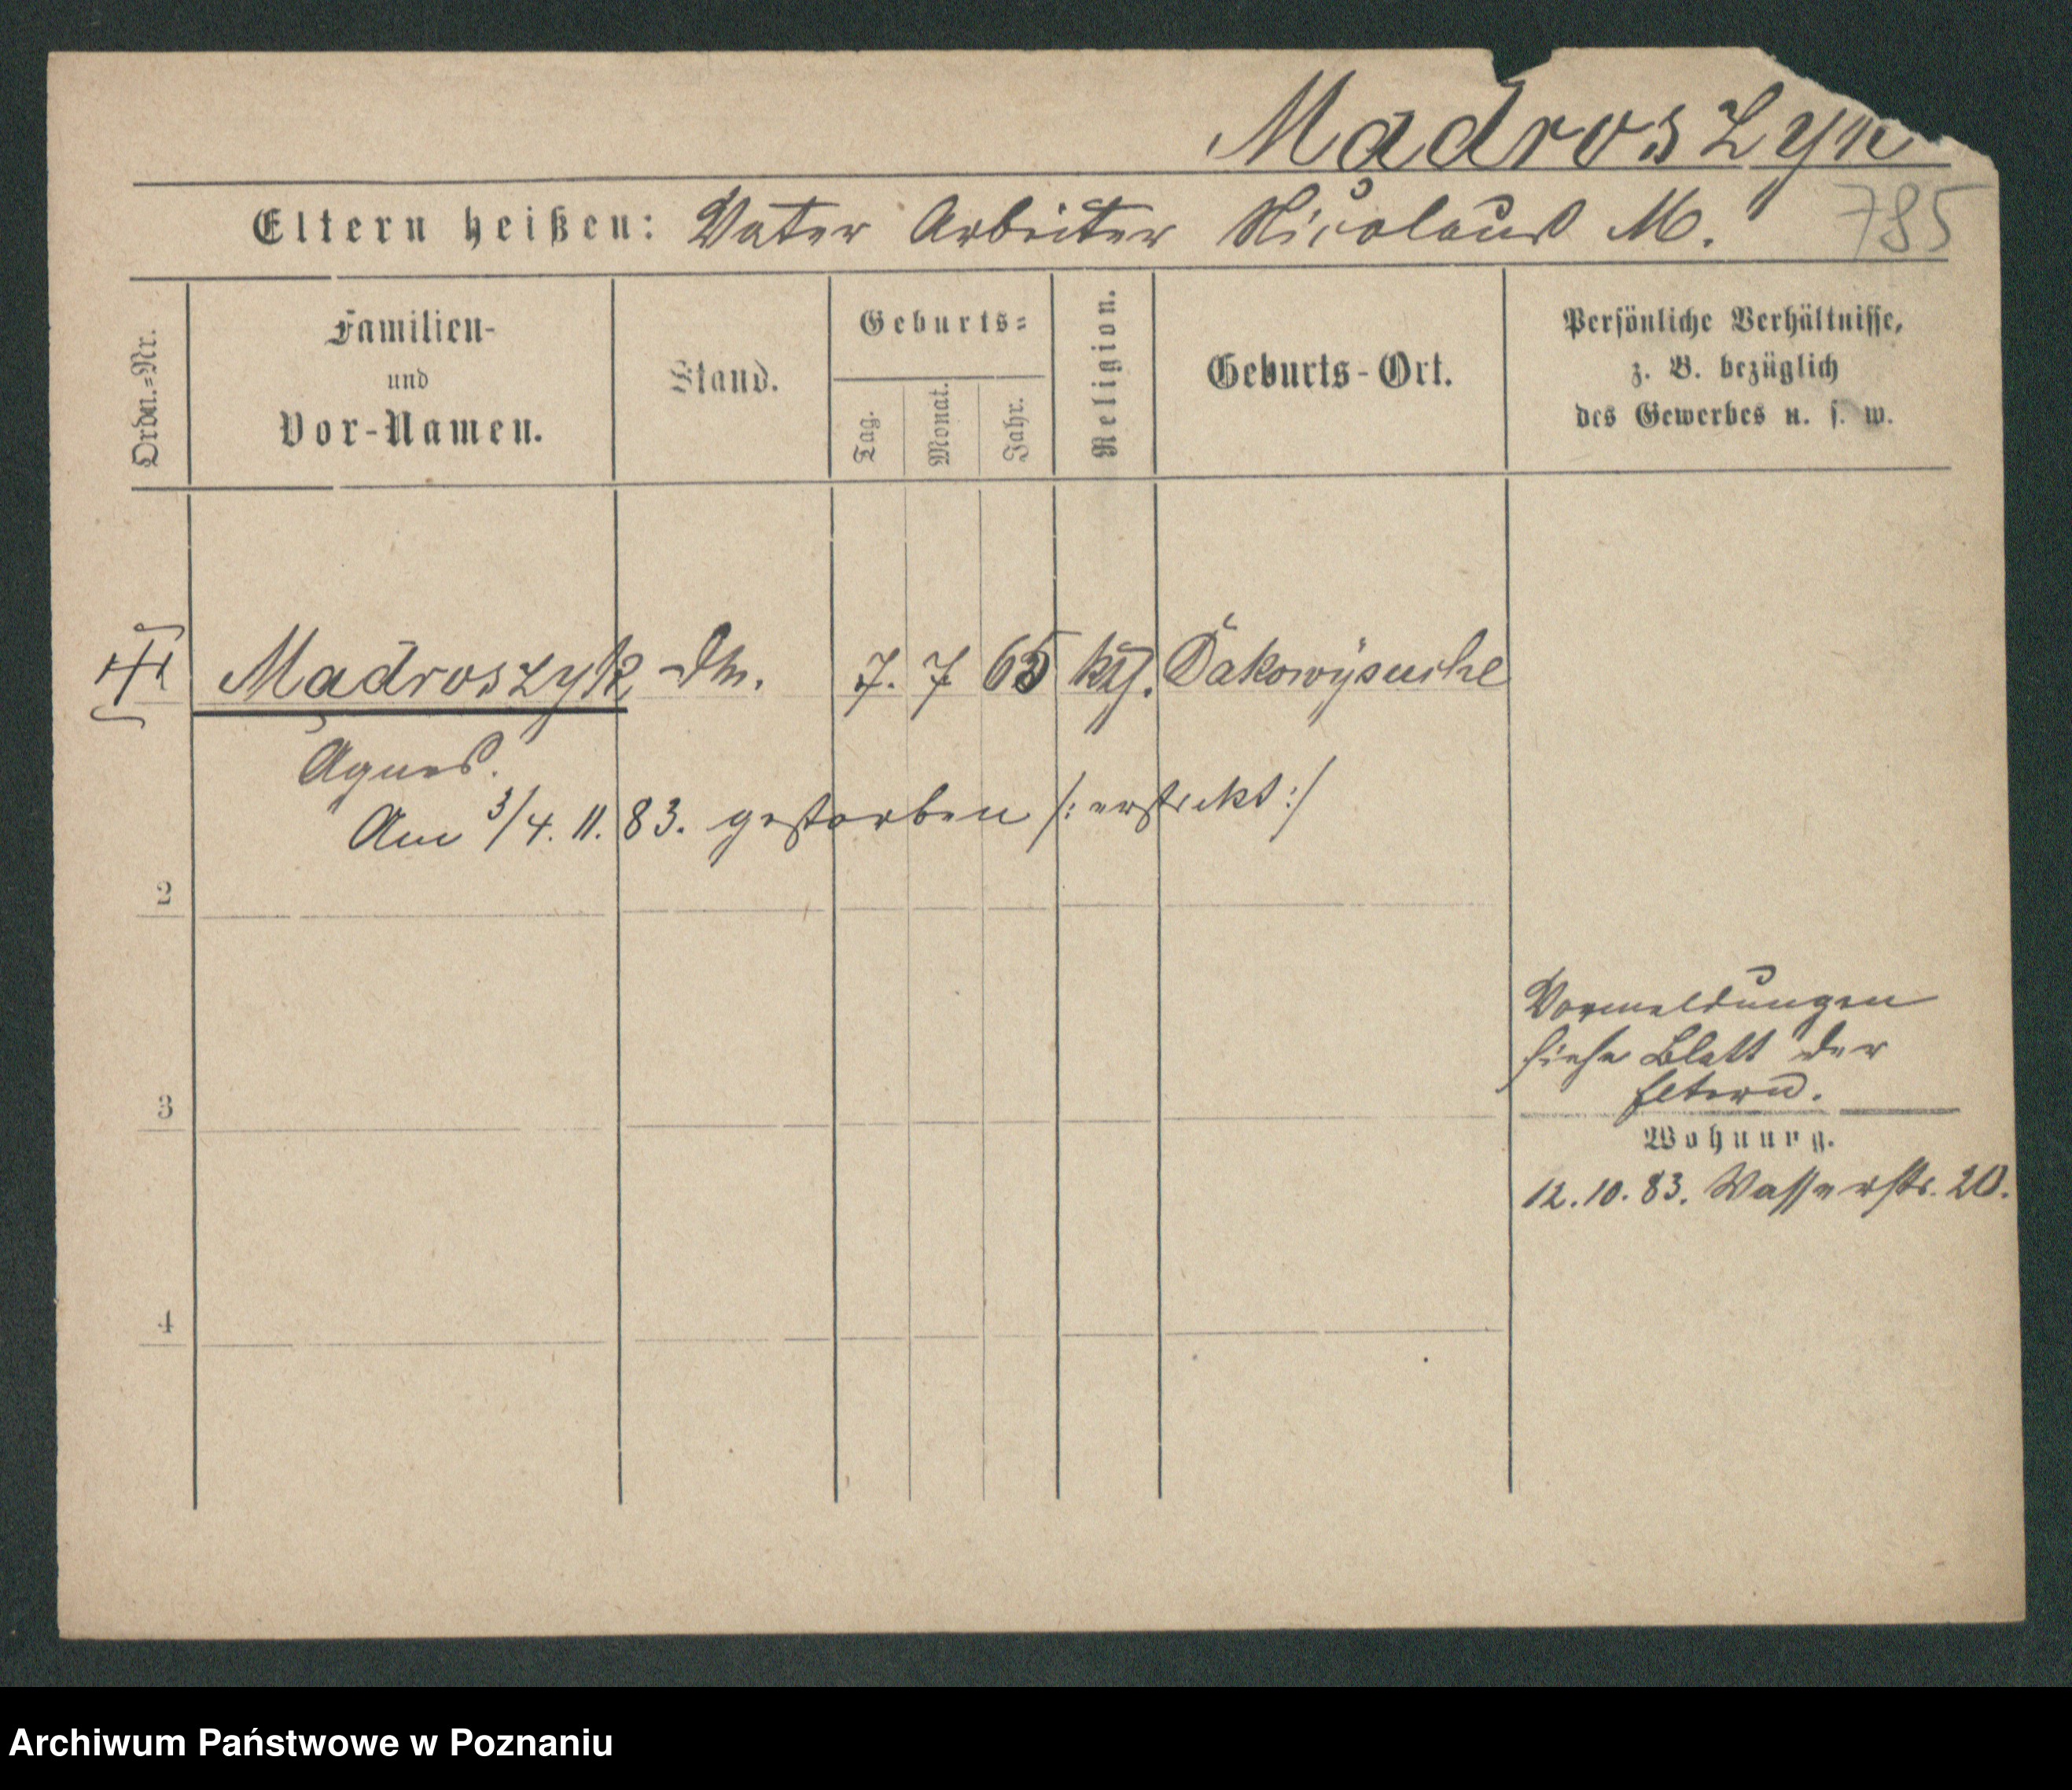 Madroszyk
Eltern heißen: Vater Arbeiter Nicolaus M. 785
Ordn.=Nr.
Familien-
und
Vor-Namen.
Stand.
Geburts=
Tag.
Monat.
Jahr.
Religion.
Geburts-Ort.
Persönliche Verhältnisse,
z. B. bezüglich
des Gewerbes u. s. w.
Madroszyk 7. 7 65
Agnes.
Am 3/4. 11. 83. gestorben /: erstickt :/
2
Vormeldungen
siehe Blatt der
Eltern.
3
Wohnung.
12. 10. 83. Wasserstr. 20.
4
Archiwum Państwowe w Poznaniu